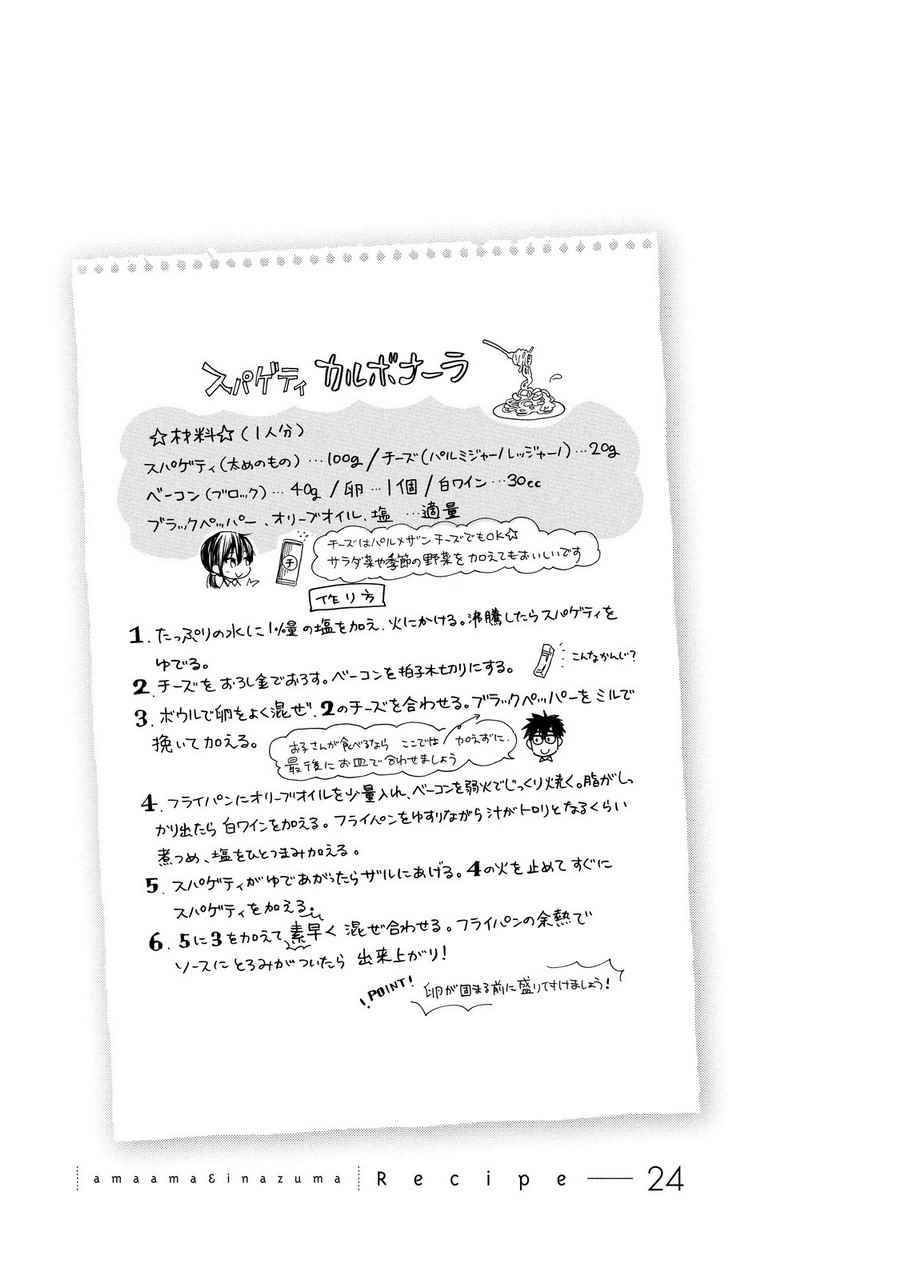 スパゲティ カルボナーラ
☆材料☆(1人分)
スパゲティ(太めのもの)…100g/チーズ(パルミジャーノレッジャーノ)…20g
ベーコン(ブロック)…40g/卵…1個/白ワイン…30cc
ブラックペッパー、オリーブオイル、塩…適量
チ
チーズはパルメザンチーズでもOK☆
サラダ菜や季節の野菜を加えてもおいしいです
作り方
1.たっぷりの水に1%量の塩を加え、火にかける。沸騰したらスパゲティを
ゆでる。
2.チーズをおろし金でおろす。ベーコンを拍子木切りにする。
こんなかんじ?
3.ボウルで卵をよく混ぜ、2のチーズを合わせる。ブラックペッパーをミルで
挽いて加える。
お子さんが食べるなら ここでは 加えずに、
最後にお皿で合わせましょう
4.フライパンにオリーブオイルを少量入れ、ベーコンを弱火でじっくり焼く。脂がしっ
かり出たら白ワインを加える。フライパンをゆすりながら汁がトロリとなるくらい
煮つめ、塩をひとつまみ加える。
5.スパゲティがゆであがったらザルにあげる。4の火を止めてすぐに
スパゲティを加える。
6.5に3を加えて素早く混ぜ合わせる。フライパンの余熱で
ソースにとろみがついたら 出来上がり!
!POINT!
卵が固まる前に盛りつけましょう!
amaama&inazuma Recipe — 24